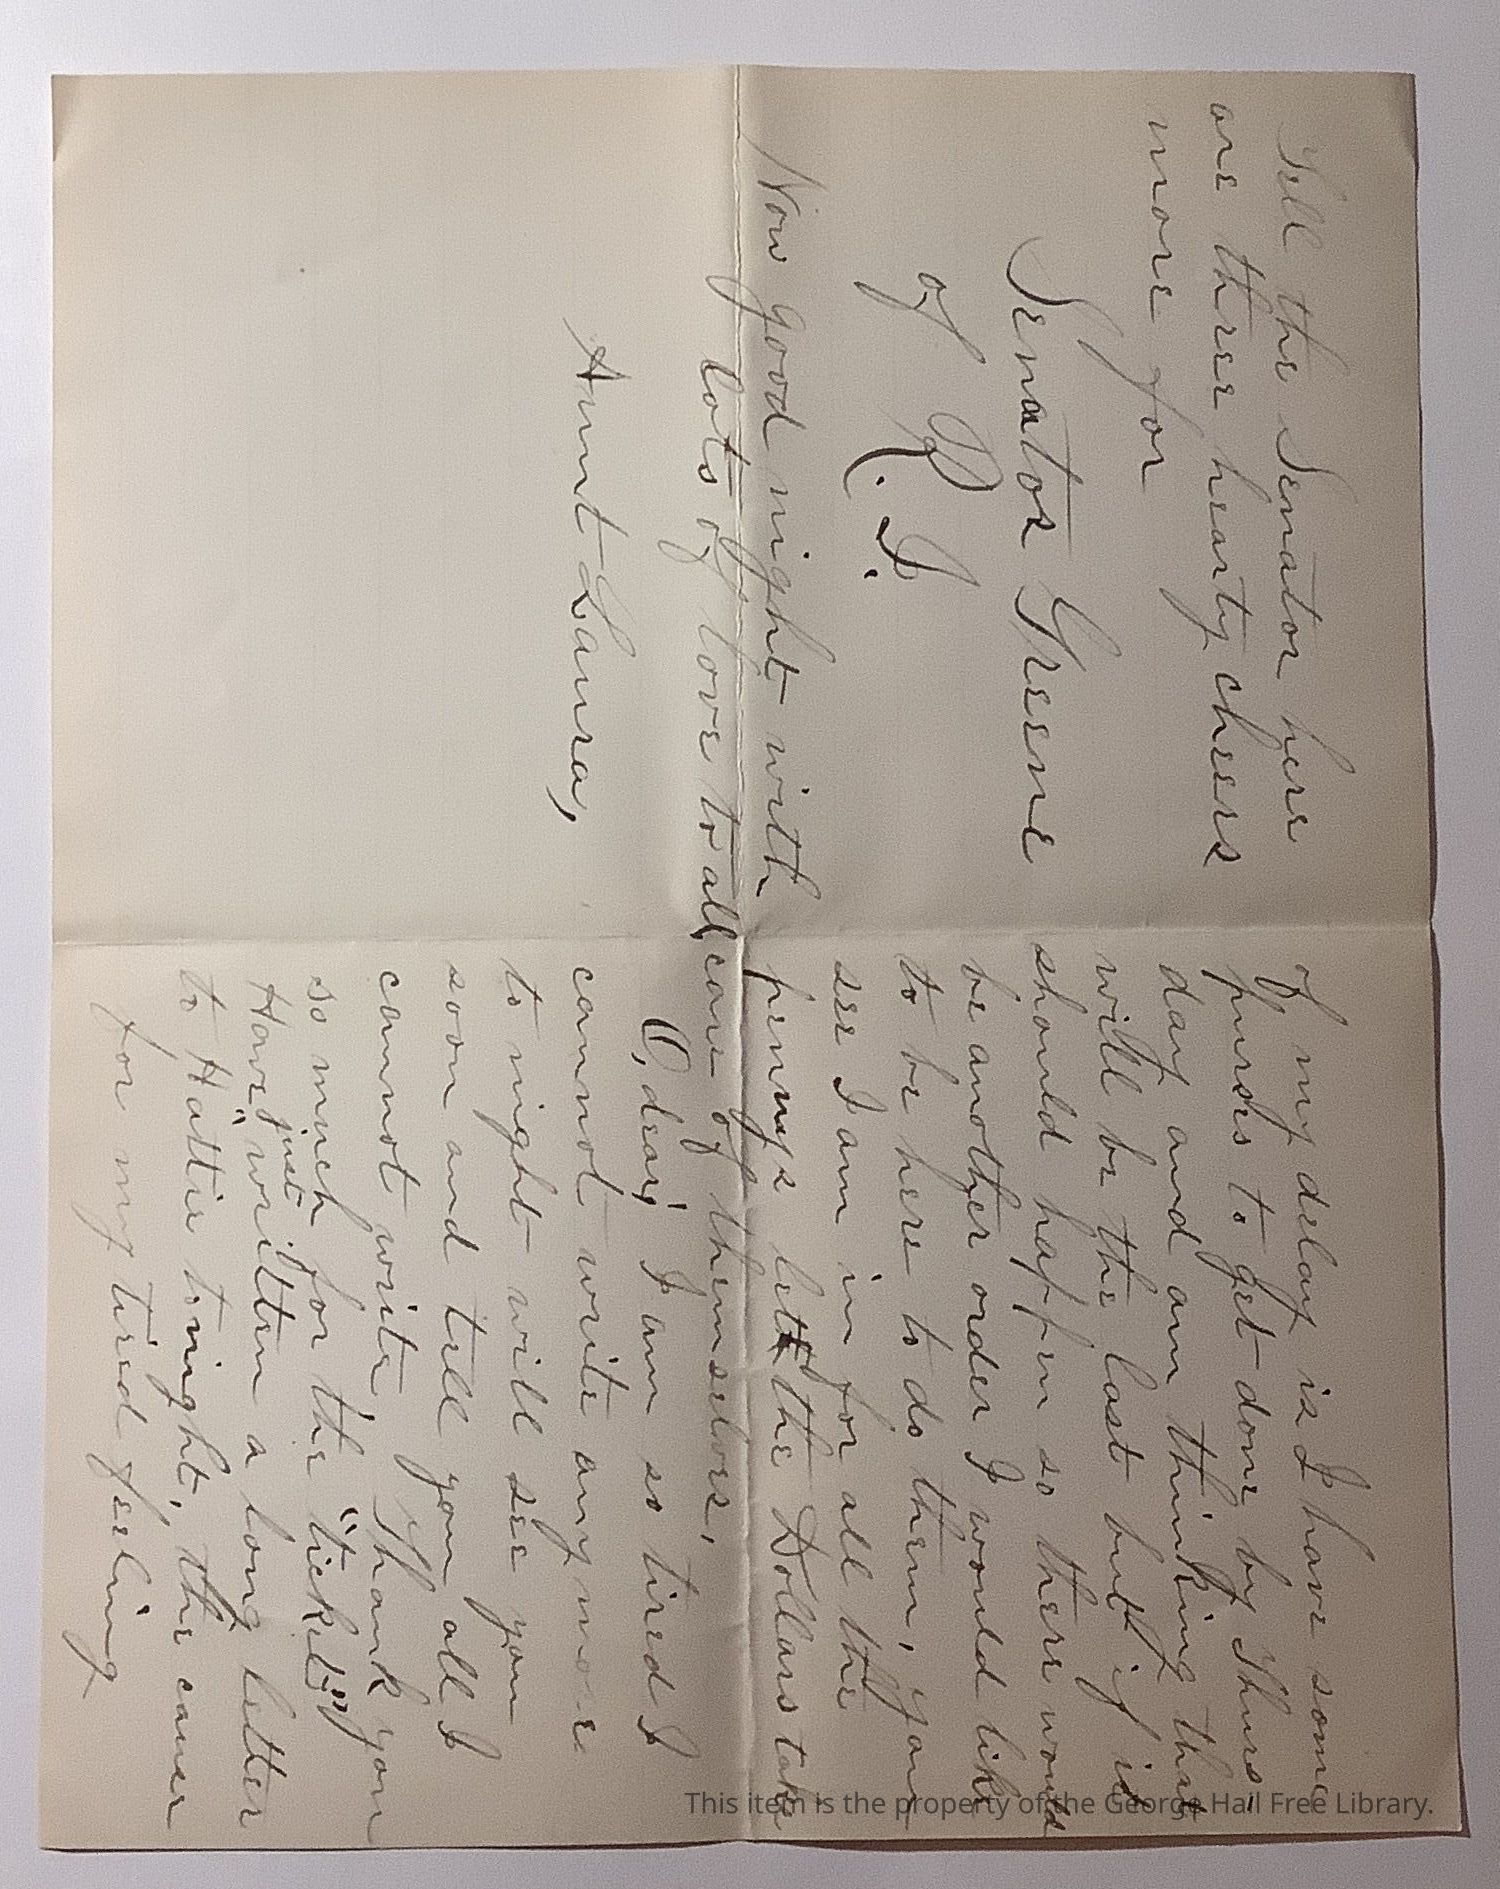 Tell the Senator here
are three hearty cheers
more for
Senator Greene
of R. I.
Now good night with
lots of love to all
Aunt Laura,
of my delay is I have some
purses to get done by Thurs,
day and am thinking that
will be the last but if it
should happen so there would
be another order I would like
to be here to do them, your
see I am in for all the
pennys lett the Dollars take
care of themselves,
O, dear! I am so tired I
cannot write any more
to night will see you
soon and tell you all I
cannot write, Thank you
so much for the "tickets"
Have just written a long letter
to Hattie tonight, the cause
for my tired feeling
This item is the property of the George Hail Free Library.